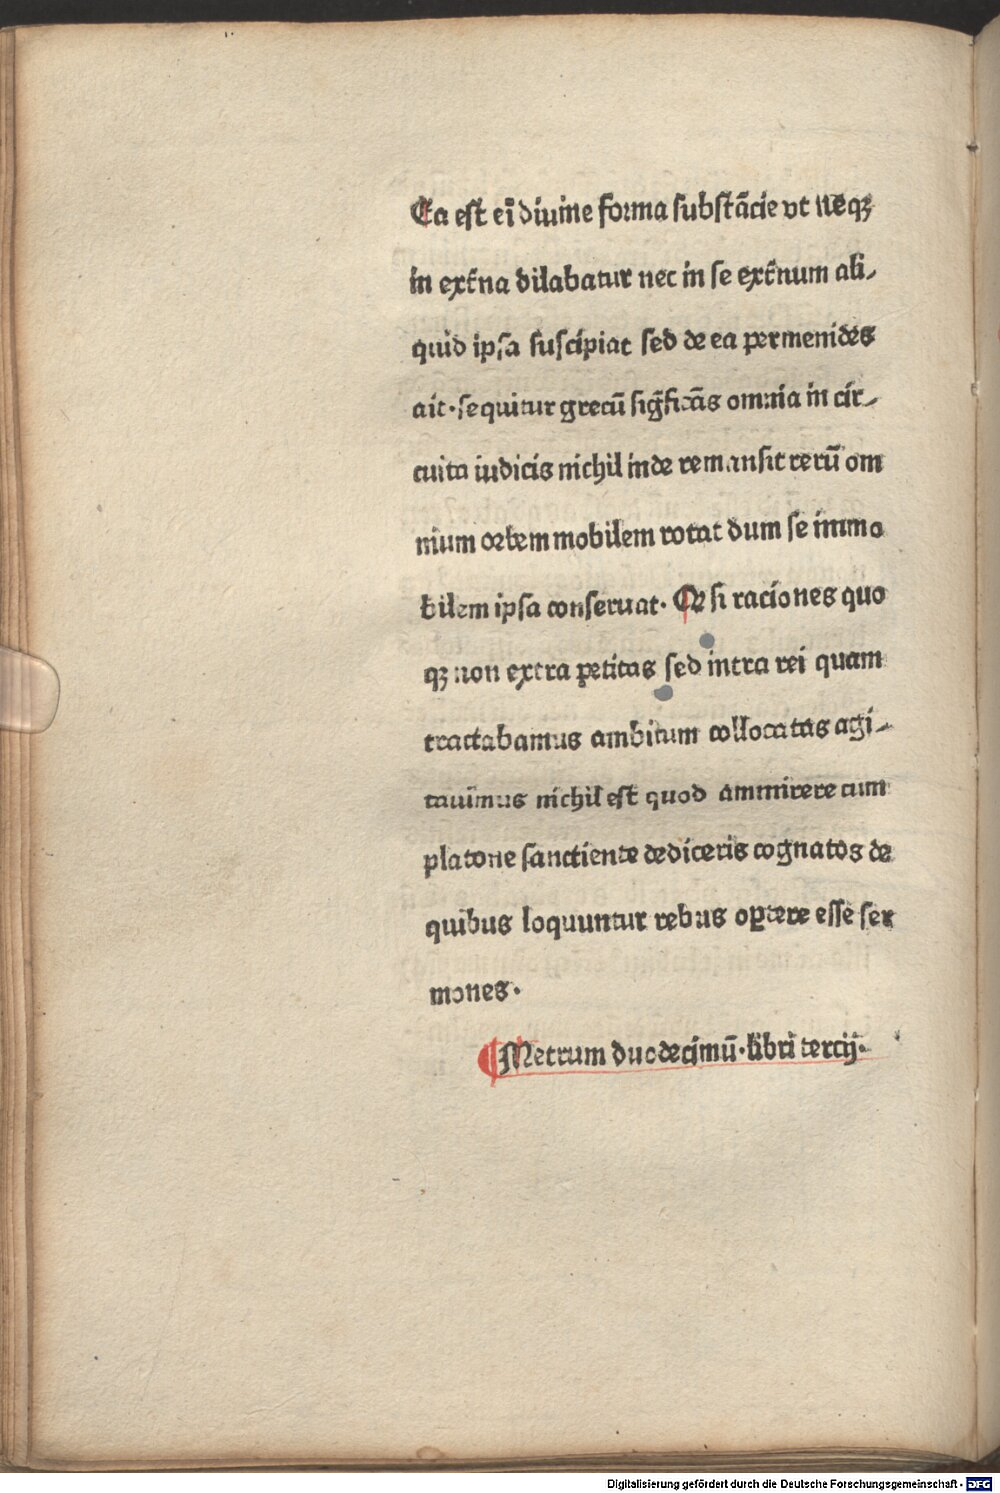 Ea est ei̅ diuine forma substa̅cie vt neqꝫ
in ext̅na dilabatur nec in se ext̅num ali-
quid ipsa suscipiat sed de ea permenides
ait·sequitur grecu̅ sig̅fica̅s omnia in cir-
cuitu iudicis nichil inde remansit reru̅ om
nium orbem mobilem rotat dum se immo
bilem ipsa conseruat· Qꝫ si raciones quo
qꝫ non extra petitas sed intra rei quam
tractabamus ambitum collocatas agi-
tauimus nichil est quod ammirere cum
platone sanctiente dediceris cognatos de
quibus loquuntur rebus oꝑtere esse ser
mones·
¶Metrum duodecimu̅·libri tercij·
Digitalisierung gefördert durch die Deutsche Forschungsgemeinschaft - DFG